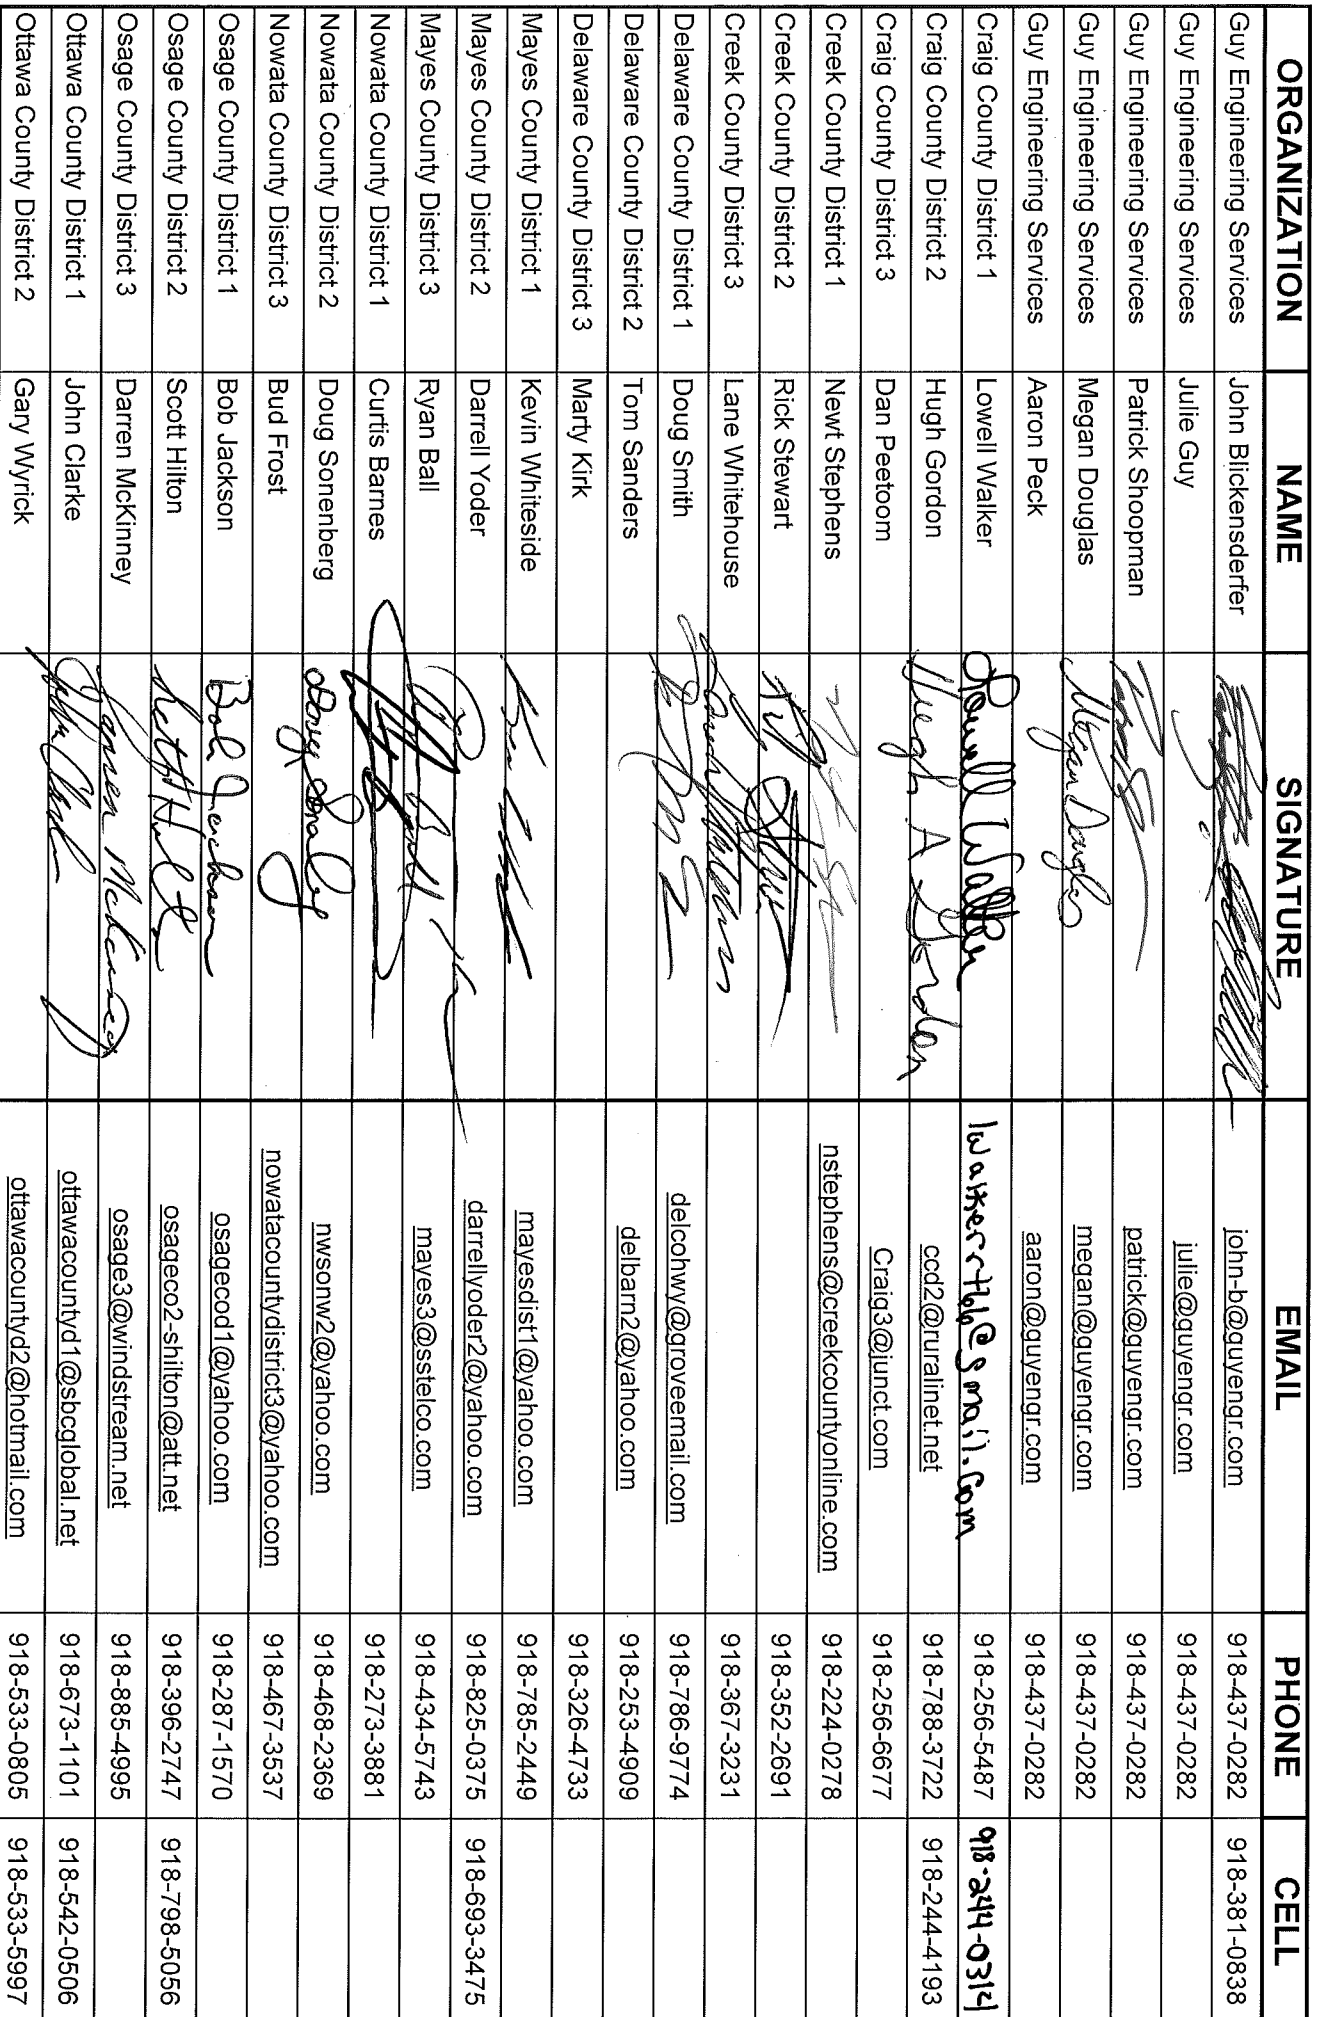 ORGANIZATION NAME SIGNATURE EMAIL PHONE CELL
Guy Engineering Services John Blickensderfer john-b@guyengr.com 918-437-0282 918-381-0838
Guy Engineering Services Julie Guy julie@guyengr.com 918-437-0282
Guy Engineering Services Patrick Shoopman patrick@guyengr.com 918-437-0282
Guy Engineering Services Megan Douglas Megan Douglas megan@guyengr.com 918-437-0282
Guy Engineering Services Aaron Peck aaron@guyengr.com 918-437-0282
Craig County District 1 Lowell Walker Lowell Walker 918-256-5487
Craig County District 2 Hugh Gordon Hugh A Gordon ccd2@ruralinet.net 918-788-3722 918-244-4193
Craig County District 3 Dan Peetoom Craig3@junct.com 918-256-6677
Creek County District 1 Newt Stephens nstephens@creekcountyonline.com 918-224-0278
Creek County District 2 Rick Stewart 918-352-2691
Creek County District 3 Lane Whitehouse 918-367-3231
Delaware County District 1 Doug Smith delcohwy@groveemail.com 918-786-9774
Delaware County District 2 Tom Sanders delbarn2@yahoo.com 918-253-4909
Delaware County District 3 Marty Kirk 918-326-4733
Mayes County District 1 Kevin Whiteside mayesdist1@yahoo.com 918-785-2449
Mayes County District 2 Darrell Yoder darrellyoder2@yahoo.com 918-825-0375 918-693-3475
Mayes County District 3 Ryan Ball mayes3@sstelco.com 918-434-5743
Nowata County District 1 Curtis Barnes 918-273-3881
Nowata County District 2 Doug Sonenberg nwsonw2@yahoo.com 918-468-2369
Nowata County District 3 Bud Frost nowatacountydistrict3@yahoo.com 918-467-3537
Osage County District 1 Bob Jackson Bob Jackson osagecod1@yahoo.com 918-287-1570
Osage County District 2 Scott Hilton Scott Hilton osageco2-shilton@att.net 918-396-2747 918-798-5056
Osage County District 3 Darren McKinney Darren McKinney osage3@windstream.net 918-885-4995
Ottawa County District 1 John Clarke John Clarke ottawacountyd1@sbcglobal.net 918-673-1101 918-542-0506
Ottawa County District 2 Gary Wyrick ottawacountyd2@hotmail.com 918-533-0805 918-533-5997